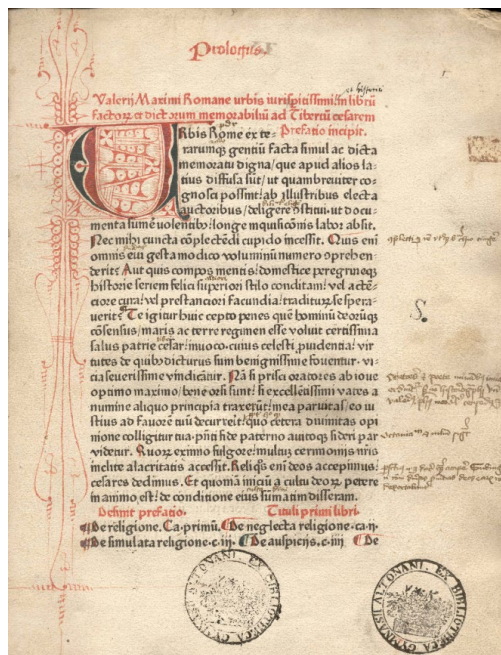 Prologus.
Valerij Maximi Romane urbis iurispitissimi in librū
factoꝝ et dictorum memorabiliū ad Tiberiū cesarem
Prefatio incipit.
URbis Rome exte-
rarumqꝫ gentiū facta simul ac dicta
memoratu digna/ que apud alios la-
tius diffusa sūt/ ut quam breuiter co-
gnosci possint: ab illustribus electa
auctoribus/ deligere ꝯstitui: ut docu-
menta sumē volentibꝫ: longe inquisiconis labor absit.
Nec mihi cuncta cōplectēdi cupido incessit. Quis eni
omnis eui gesta modico voluminū numero ꝯprehen-
derit? Aut quis compos mentis: domestice peregrineqꝫ
historie seriem felici superiori stilo conditam: vel actē-
tiore cura: vel prestanciori facundia: tradituꝝ se spera-
uerit? Te igitur huic cepto penes quē hominū deorūqꝫ
cōsensus/ maris ac terre regimen esse voluit certissima
salus patrie cesar: inuoco. cuius celesti ꝓuidentia: vir-
tutes de quibꝫ dicturus sum benignissime fouentur. vi-
cia seuerissime vindicātur. Nā si prisci oratores ab ioue
optimo maximo/ bene orsi sunt: si excellētissimi vates a
numine aliquo principia traxerūt: mea paruitas/ eo iu-
stius ad fauorē tuū decurreit: quo cetera diuinitas opi
nione colligitur tua p̄nti fide paterno auitoqꝫ sideri par
videtur. Quoꝝ eximo fulgore: multuꝫ cerimoniis nr̄is
inclite alacritatis accessit. Reliqͦs eni deos accepimus:
cesares dedimus. Et quoniā iniciū a cultu deoꝝ petere
in animo est: de conditione eius sūmatim disseram.
Definit prefatio. Tituli primi libri.
De religione. Ca. primū. De neglecta religione. ca. ij.
De simulata religione. c. iij. De auspicijs. c. iiij De
S.
GYMNASII ALTONANI. EX BIBLIOTHECA
GYMNASII ALTONANI. EX BIBLIOTHECA